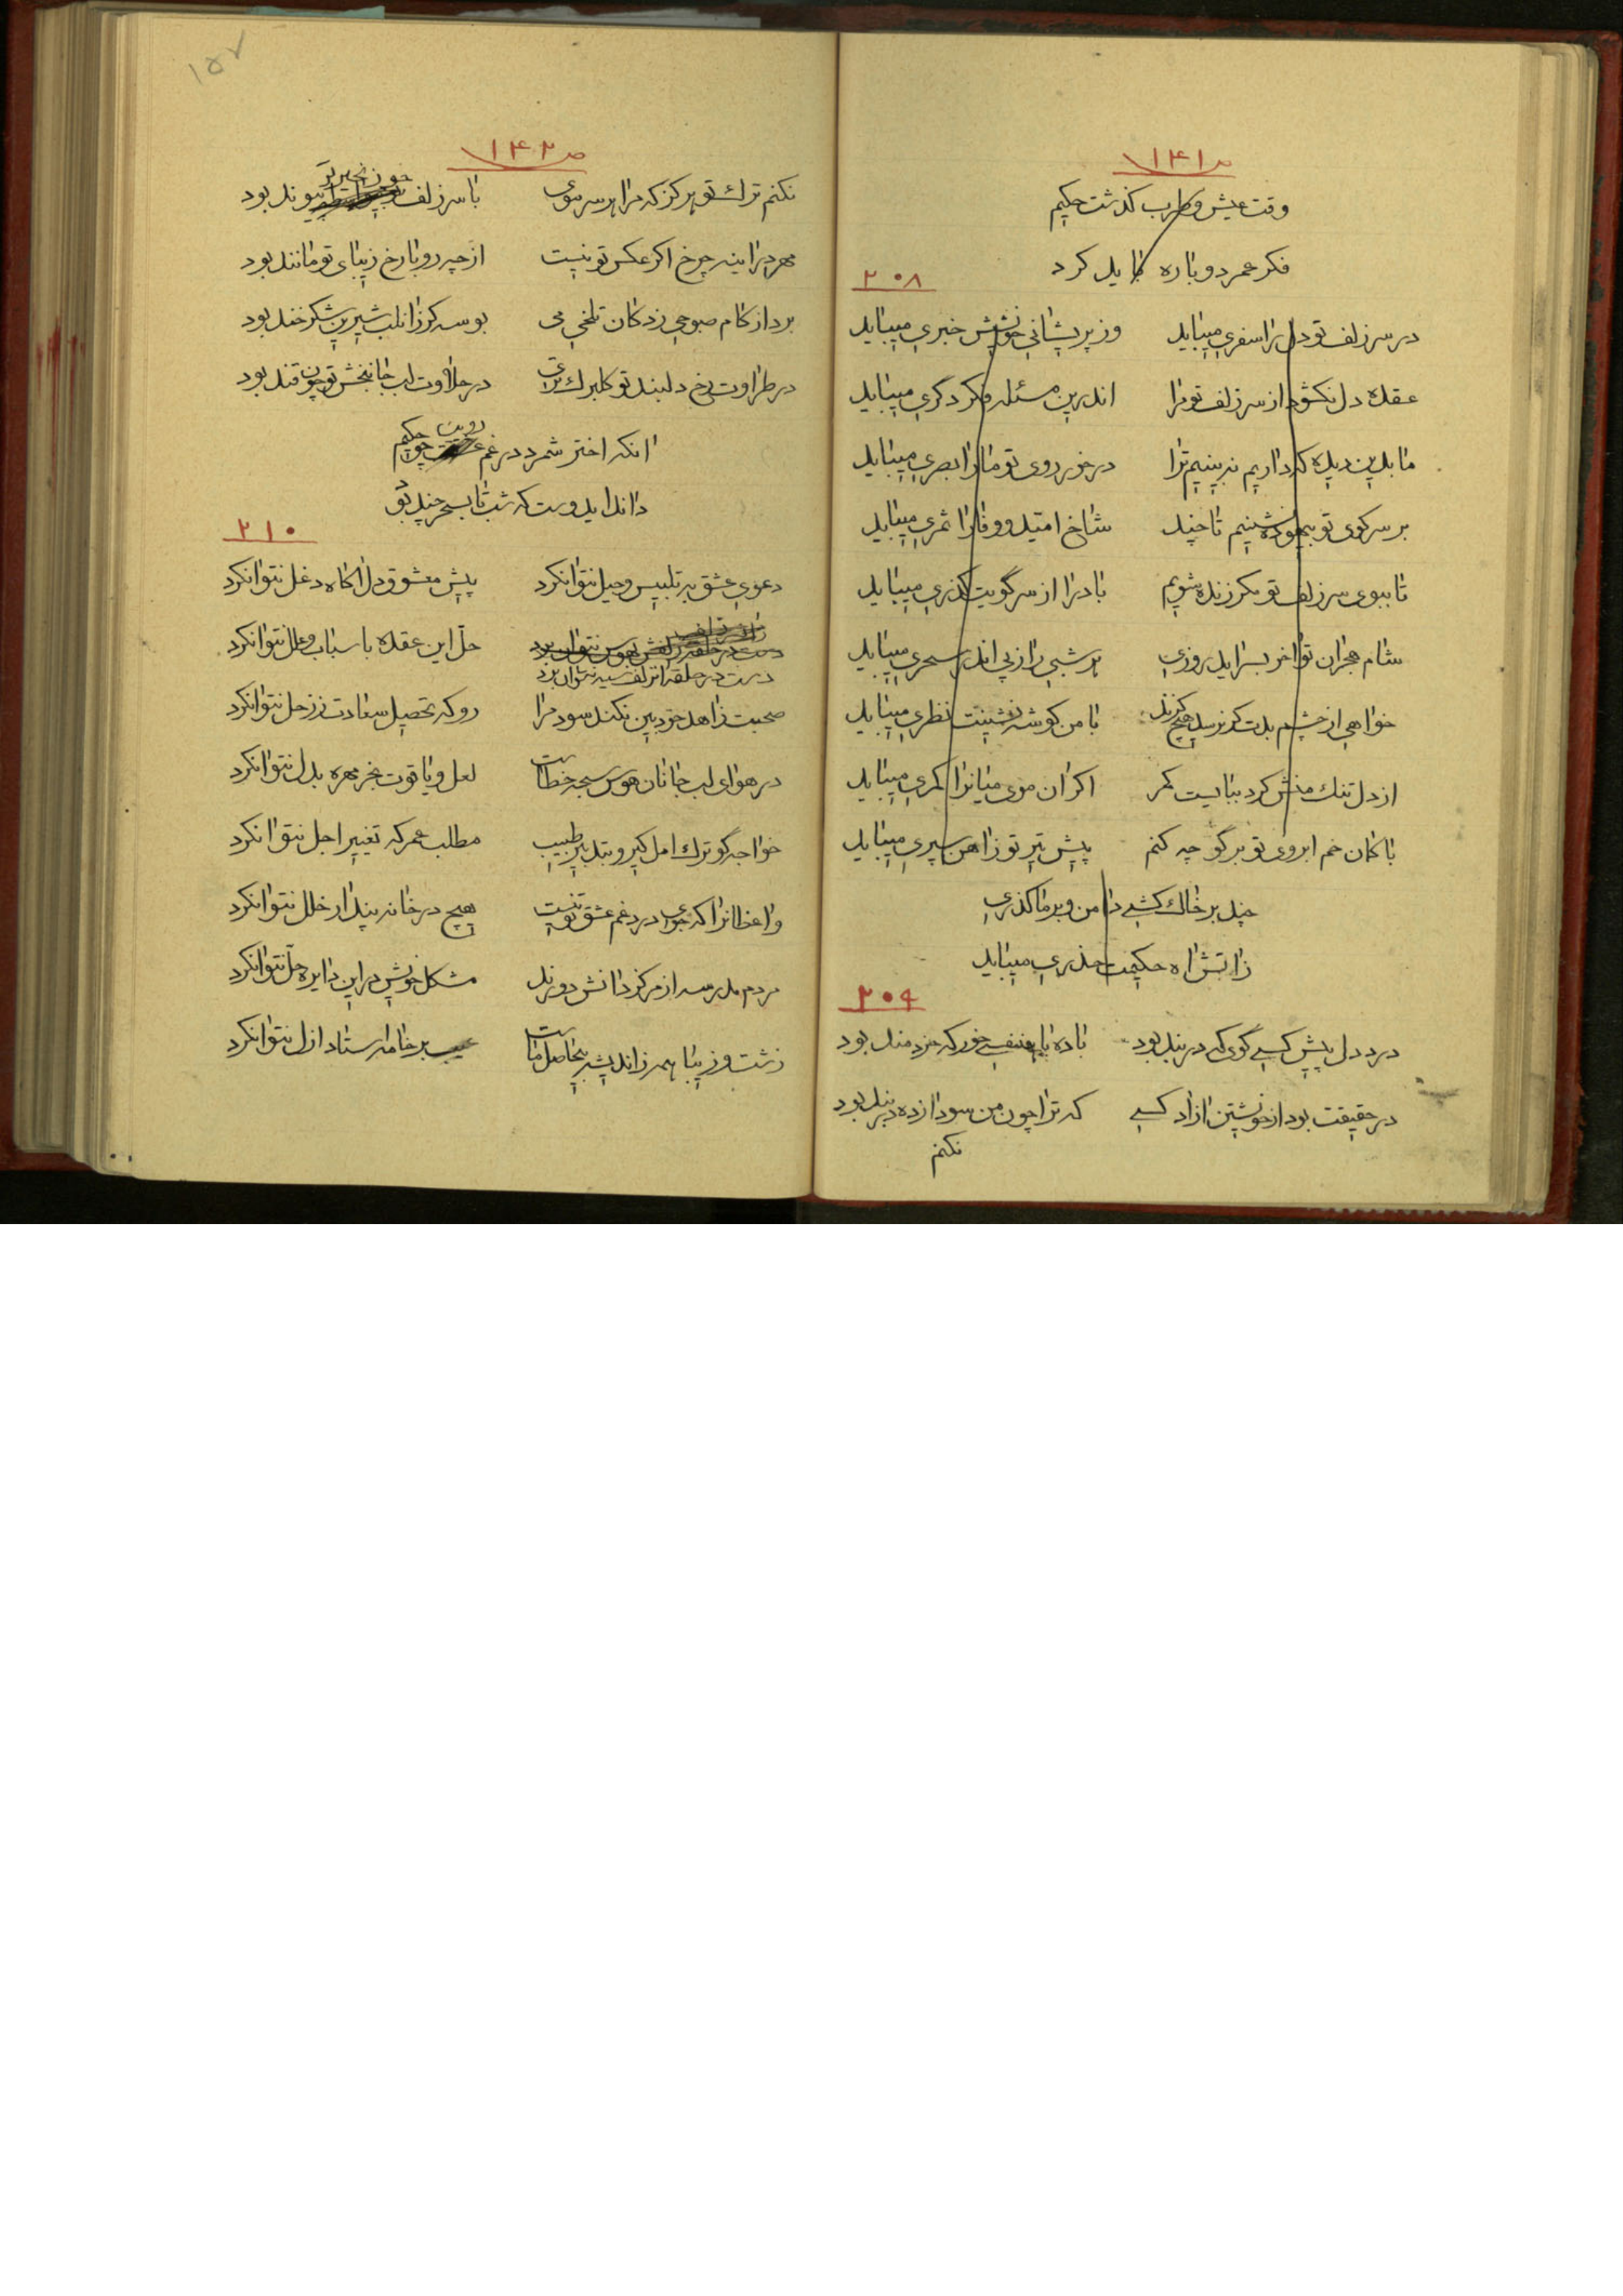 ص ۱۴۱
وقت عیش و طرب کذشت حکیم
فکر عمر دوباره باید کرد
۲۰۸
در سر زلف تو دل را سفری میباید وز پریشانی خویشش خبری میباید
عقده دل نکشود از سر زلف تو مرا اندرین مسئله فکر دکری میباید
ما بدین دیده که داریم نه بینیم ترا درخور روی تو ما را بصری میباید
بر سر کوی تو بیهوده نشینیم تا چند شاخ امید و وفا را ثمری میباید
تا ببوی سر زلف تو مکرر زنده شویم باد را از سر گویت گذری میباید
شام هجران تو اخر بسر اید روزی هر شبی را ز پی اندر سحری میباید
خواهی از چشم بدت کر نرسد هیچ کزند با من کوشه نشینت نظری میباید
از دل تنک منش کرد ببایست کمر اکر ان موی میانرا کمری میباید
با کمان خم ابروی تو بر گو چه کنم پیش تیر تو ز اهن سپری میباید
چند بر خاک کشی دامن و بر ما کذری
ز اتش اه حکیمت حذری میباید
۲۰۹
درد دل پیش کسی گوی که در بند بود باده با هم نفسی خور که خردمند بود
در حقیقت بود از خویشتن ازاد کسی که ترا چون من سودا زده در بند بود
نکنم
۱۵۷
ص ۱۴۲
نکنم ترک تو هرکز که مرا هر سر موی با سر زلف چو زنجیر تو پیوند بود
مهر در اینه چرخ اکر عکس تو نیست از چه رو با رخ زیبای تو مانند بود
برد از کام صبوحی زدکان تلخی می بوسه کز زان لب شیرین شکرخند بود
در طراوت رخ دلبند تو کلبرک تری در حلاوت لب جانبخش تو چون قند بود
انکه اختر شمرد در غم رویت چو حکیم
داند ایدوست که شب تا بسحر چند بود
۲۱۰
دعوی عشق به تلبیس و حیل نتوانکرد پیش معشوق دل اکاه دغل نتوانکرد
دست در حلقه انزلف سیه نتوان برد حل این عقده باسباب و علل نتوانکرد
صحبت زاهد خودبین نکند سود مرا رو که تحصیل سعادت ز زحل نتوانکرد
در هوای لب جانان هوس سبحه خطاست لعل و یاقوت بخر مهره بدل نتوانکرد
خواجه گو ترک امل کیر و بتدبیر طبیب مطلب عمر که تغییر اجل نتوانکرد
واعظانرا که جوی درد غم عشق تو نیست هیچ در خانه پندار خلل نتوانکرد
مردم مدرسه از مرکز دانش دورند مشکل خویش در این دایره حل نتوانکرد
زشت و زیبا همه ز اندیشه بیحاصل ماست عیب بر خامه استاد ازل نتوانکرد